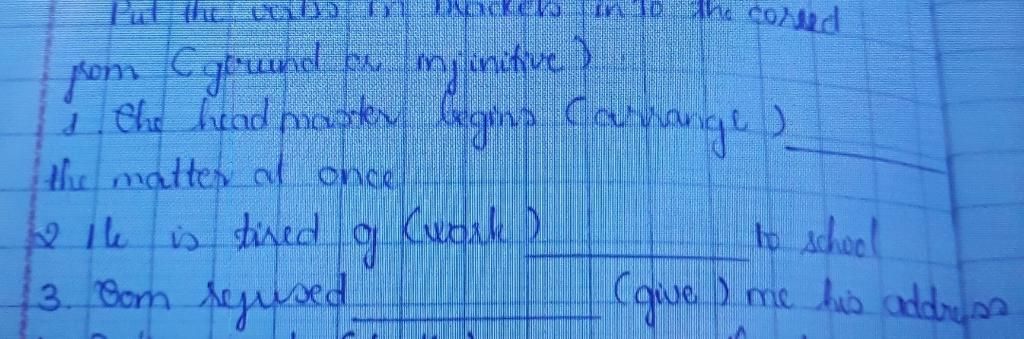 Put the verbs in brackets in to the correct
from (gerund or infinitive)
1. The head master begins (arrange) ______
the matter at once
2 He is tired of (work) ______ to school
3. Tom refused ______ (give) me his address